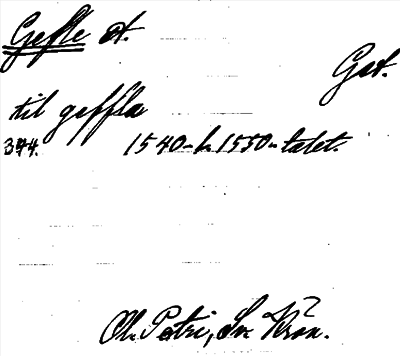 Gefle st.
Gst.
til geffla
344. 1540- h. 1550-talet.
Ol. Petri, Sv. Krön.